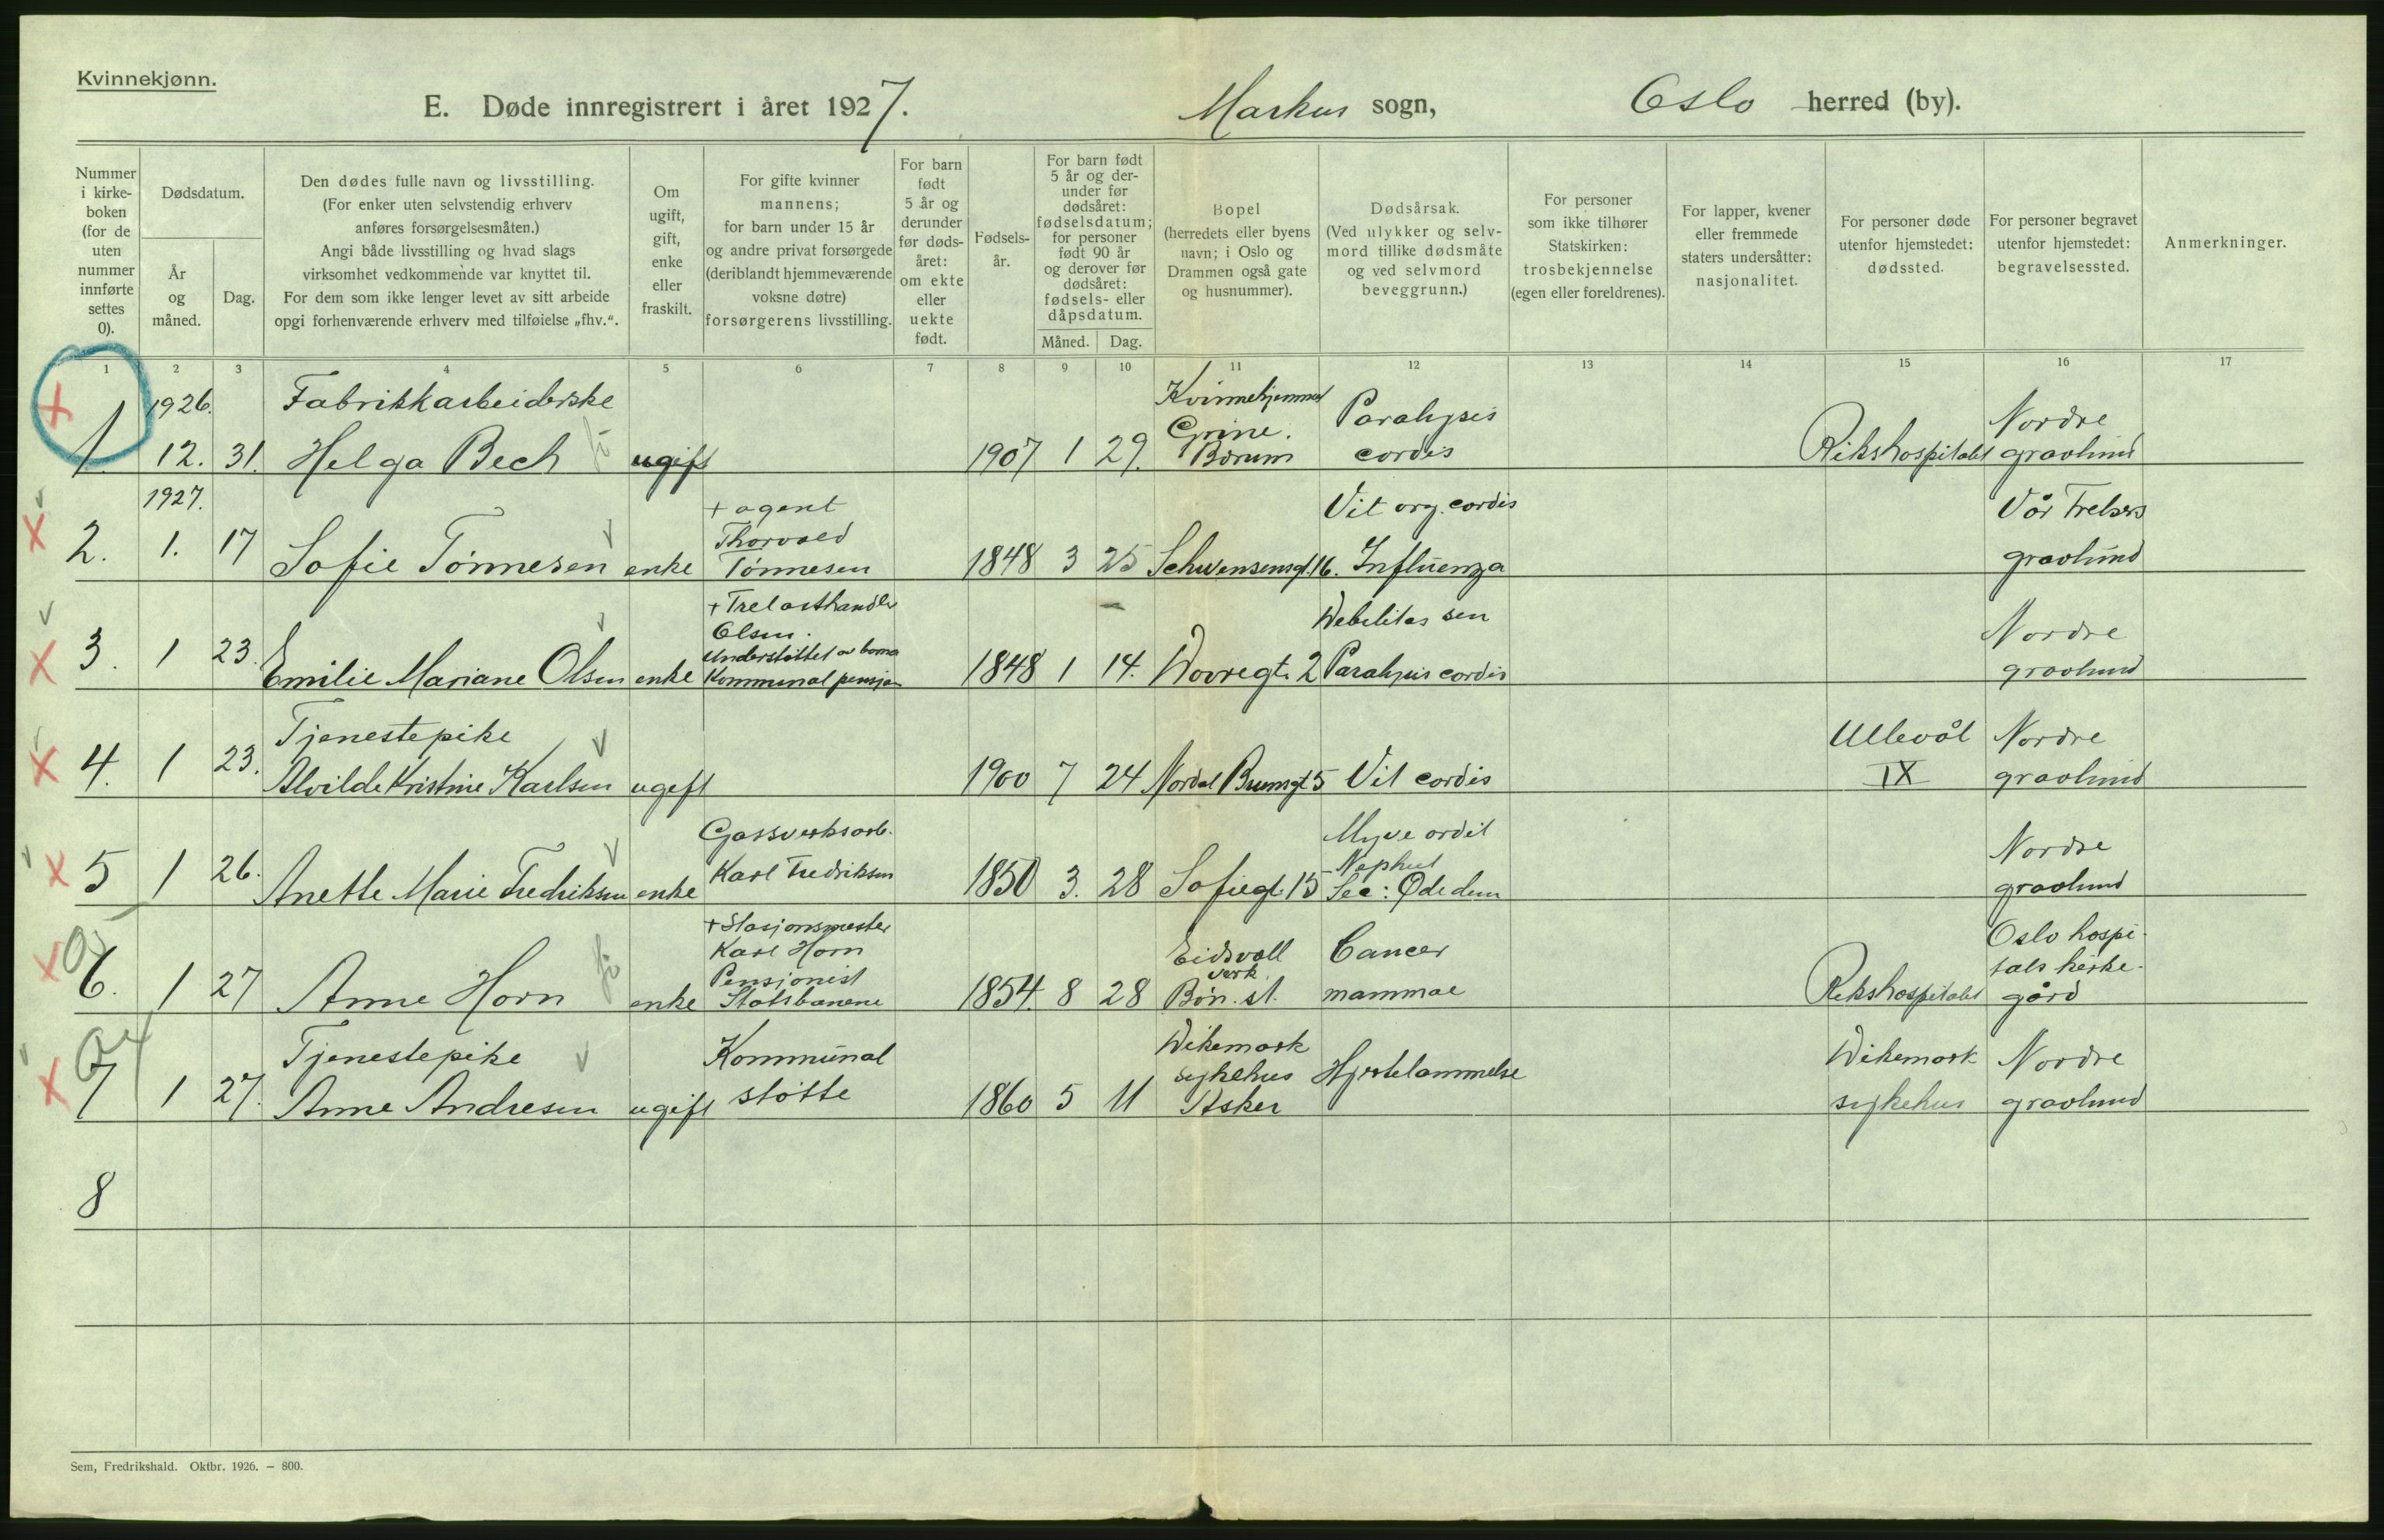 Kvinnekjønn.
E. Døde innregistrert i året 1927. Markus sogn, Oslo herred (by).
Nummer i kirke-boken (for de uten nummer innførte settes 0).
Dødsdatum.
År og måned.
Dag.
Den dødes fulle navn og livsstilling.
(For enker uten selvstendig erhverv
anføres forsørgelsesmåten.)
Angi både livsstilling og hvad slags
virksomhet vedkommende var knyttet til.
For dem som ikke lenger levet av sitt arbeide
opgi forhenværende erhverv med tilføielse „fhv.“.
Om ugift, gift, enke eller fraskilt.
For gifte kvinner
mannens;
for barn under 15 år
og andre privat forsørgede
(deriblandt hjemmeværende
voksne døtre)
forsørgerens livsstilling.
For barn født 5 år og derunder før døds-året: om ekte eller uekte født.
Fødsels-år.
For barn født
5 år og der-
under før
dødsåret:
fødselsdatum;
for personer
født 90 år
og derover før
dødsåret:
fødsels- eller
dåpsdatum.
Måned. Dag.
Bopel
(herredets eller byens
navn; i Oslo og
Drammen også gate
og husnummer).
Dødsårsak.
(Ved ulykker og selv-
mord tillike dødsmåte
og ved selvmord
beveggrunn.)
For personer
som ikke tilhører
Statskirken:
trosbekjennelse
(egen eller foreldrenes).
For lapper, kvener
eller fremmede
staters undersåtter:
nasjonalitet.
For personer døde
utenfor hjemstedet:
dødssted.
For personer begravet
utenfor hjemstedet:
begravelsessted.
Anmerkninger.
1 2 3 4 5 6 7 8 9 10 11 12 13 14 15 16 17
1. 1926. 12. 31. Fabrikkarbeiderske Helga Bech ugift 1907 1 29. Kvinnehjemmet Grine. Bærum Paralysis cordis Rikshospitalet Nordre gravlund
2. 1927. 1. 17 Sofie Tönnesen enke + agent Thorvald Tönnesen 1848 3 25 Schwensensgt. 16. Vit org. cordis Influenza Vår Frelsers gravlund
3. 1 23. Emilie Mariane Olsen enke + Trelasthandler Olsen. Understöttet av barna Kommunal pensjon 1848 1 14. Dovregt. 2 Debilitas sen Paralysis cordis Nordre gravlund
4. 1 23. Tjenestepike Alvilde Kristine Karlsen ugift 1900 7 24 Nordal Brunsgt 5 Vit cordis Ullevål IX Nordre gravlund
5 1 26. Anette Marie Fredriksen enke Gassverksarb. Karl Fredriksen 1850 3. 28 Sofiegt. 15 Nordre gravlund
6. 1 27 Anne Horn enke + Stasjonsmester Karl Horn Pensjonist Statsbanene 1854. 8 28 Eidsvoll verk Bön. st. Cancer mammae Rikshospitalet Oslo hospitals kirkegård
7 1 27. Tjenestepike Anne Andresen ugift Kommunal stötte 1860 5 11 Dikemark sykehus Asker Hjertelammelse Dikemark sykehus Nordre gravlund
8
Sem, Fredrikshald. Oktbr. 1926. – 800.